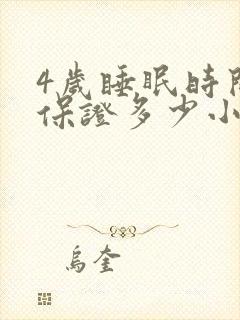 4歲睡眠時
保證多少小
烏奎